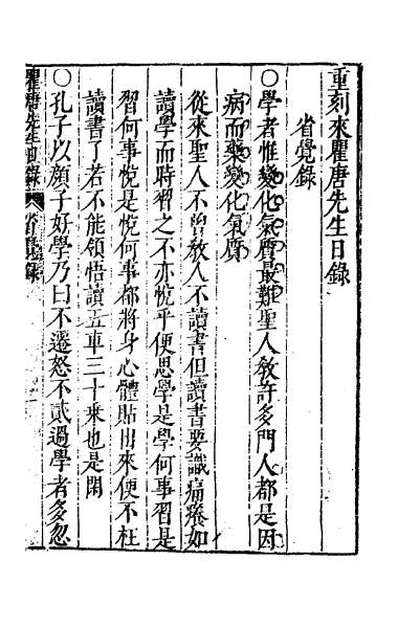 重刻來瞿唐先生日錄
省覺錄
○學者惟變化氣質最難聖人敎許多門人都是因
病而藥變化氣質
從來聖人不曾敎人不讀書但讀書要識痛癢如
讀學而時習之不亦悅乎便思學是學何事習是
習何事悅是悅何事都將身心體貼出來便不枉
讀書了若不能領悟讀五車三十乘也是閑
○孔子以顏子好學乃曰不遷怒不貳過學者多忽
瞿唐先生日錄 省覺錄